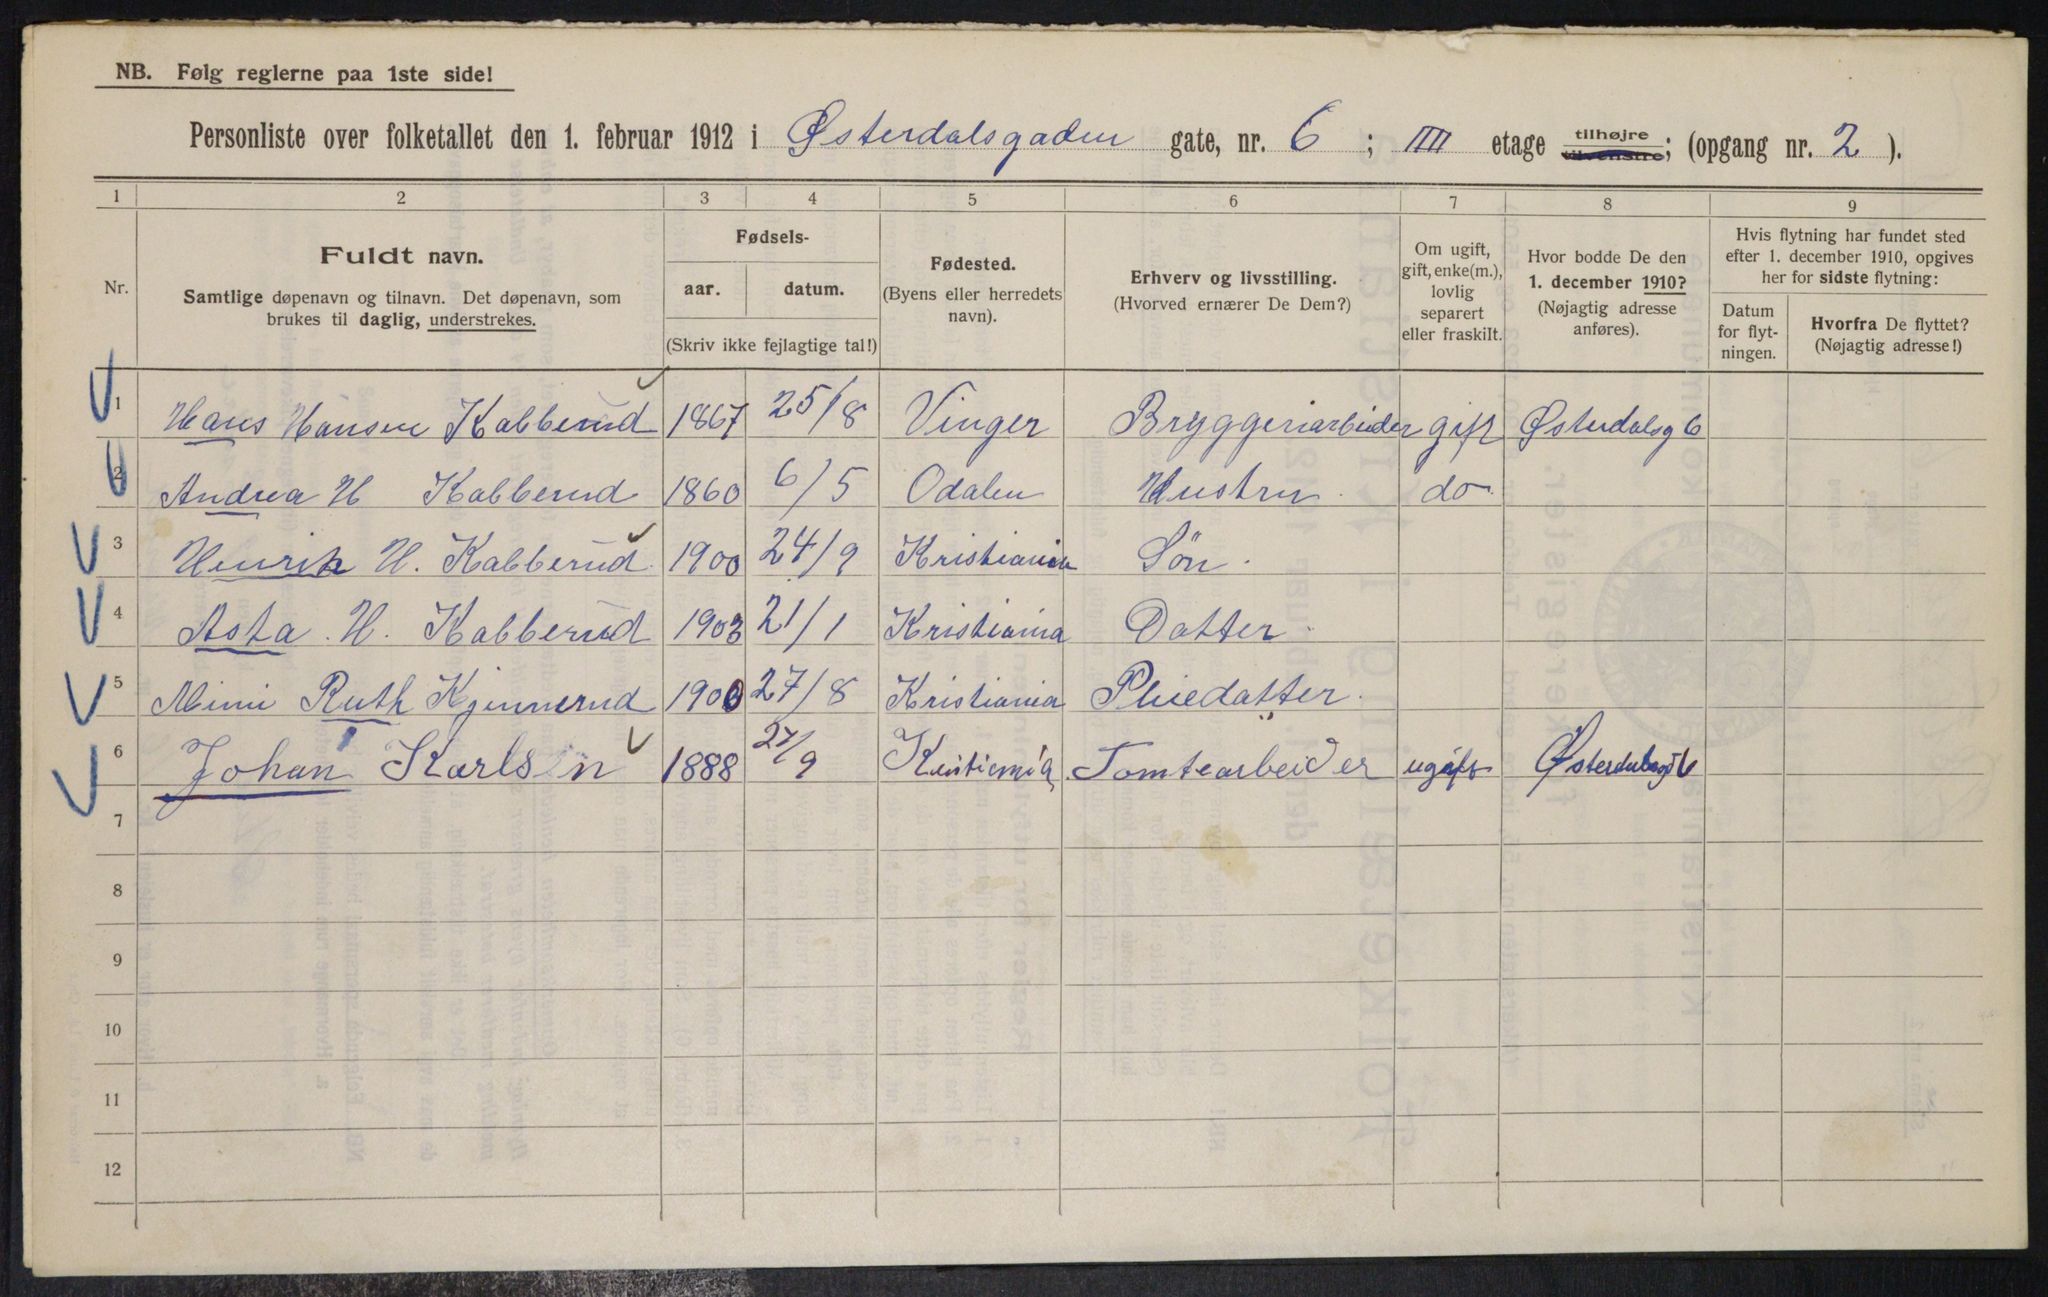 NB. Følg reglerne paa 1ste side!
Personliste over folketallet den 1. februar 1912 i Østerdalsgaden gate, nr. 6 ; IIII etage tilhøjre tilvenstre; (opgang nr. 2 ).
1 2 3 4 5 6 7 8 9
Nr.
Fuldt navn.
Samtlige døpenavn og tilnavn. Det døpenavn, som
brukes til daglig, understrekes.
Fødsels-
aar. datum.
(Skriv ikke fejlagtige tal!)
Fødested.
(Byens eller herredets
navn).
Erhverv og livsstilling.
(Hvorved ernærer De Dem?)
Om ugift,
gift, enke(m.),
lovlig
separert
eller fraskilt.
Hvor bodde De den
1. december 1910?
(Nøjagtig adresse
anføres).
Hvis flytning har fundet sted
efter 1. december 1910, opgives
her for sidste flytning:
Datum
for flyt-
ningen.
Hvorfra De flyttet?
(Nøjagtig adresse!)
1 Hans Hansen Kabberud 1867 25/8 Vinger Bryggeriarbeider gift Østerdalsg 6
2 Andrea H Kabberud 1860 6/5 Odalen Hustru. do.
3 Henrik H. Kabberud 1900 24/9 Kristiania Søn.
4 Asta. H. Kabberud 1903 21/1 Kristiania Datter.
5 Mimi Ruth Kjennerud 1900 27/8 Kristiania Pleiedatter.
6 Johan Karlsen 1888 27/9 Kristiania Tomtearbeider ugift Østerdalsgt 6
7
8
9
10
11
12